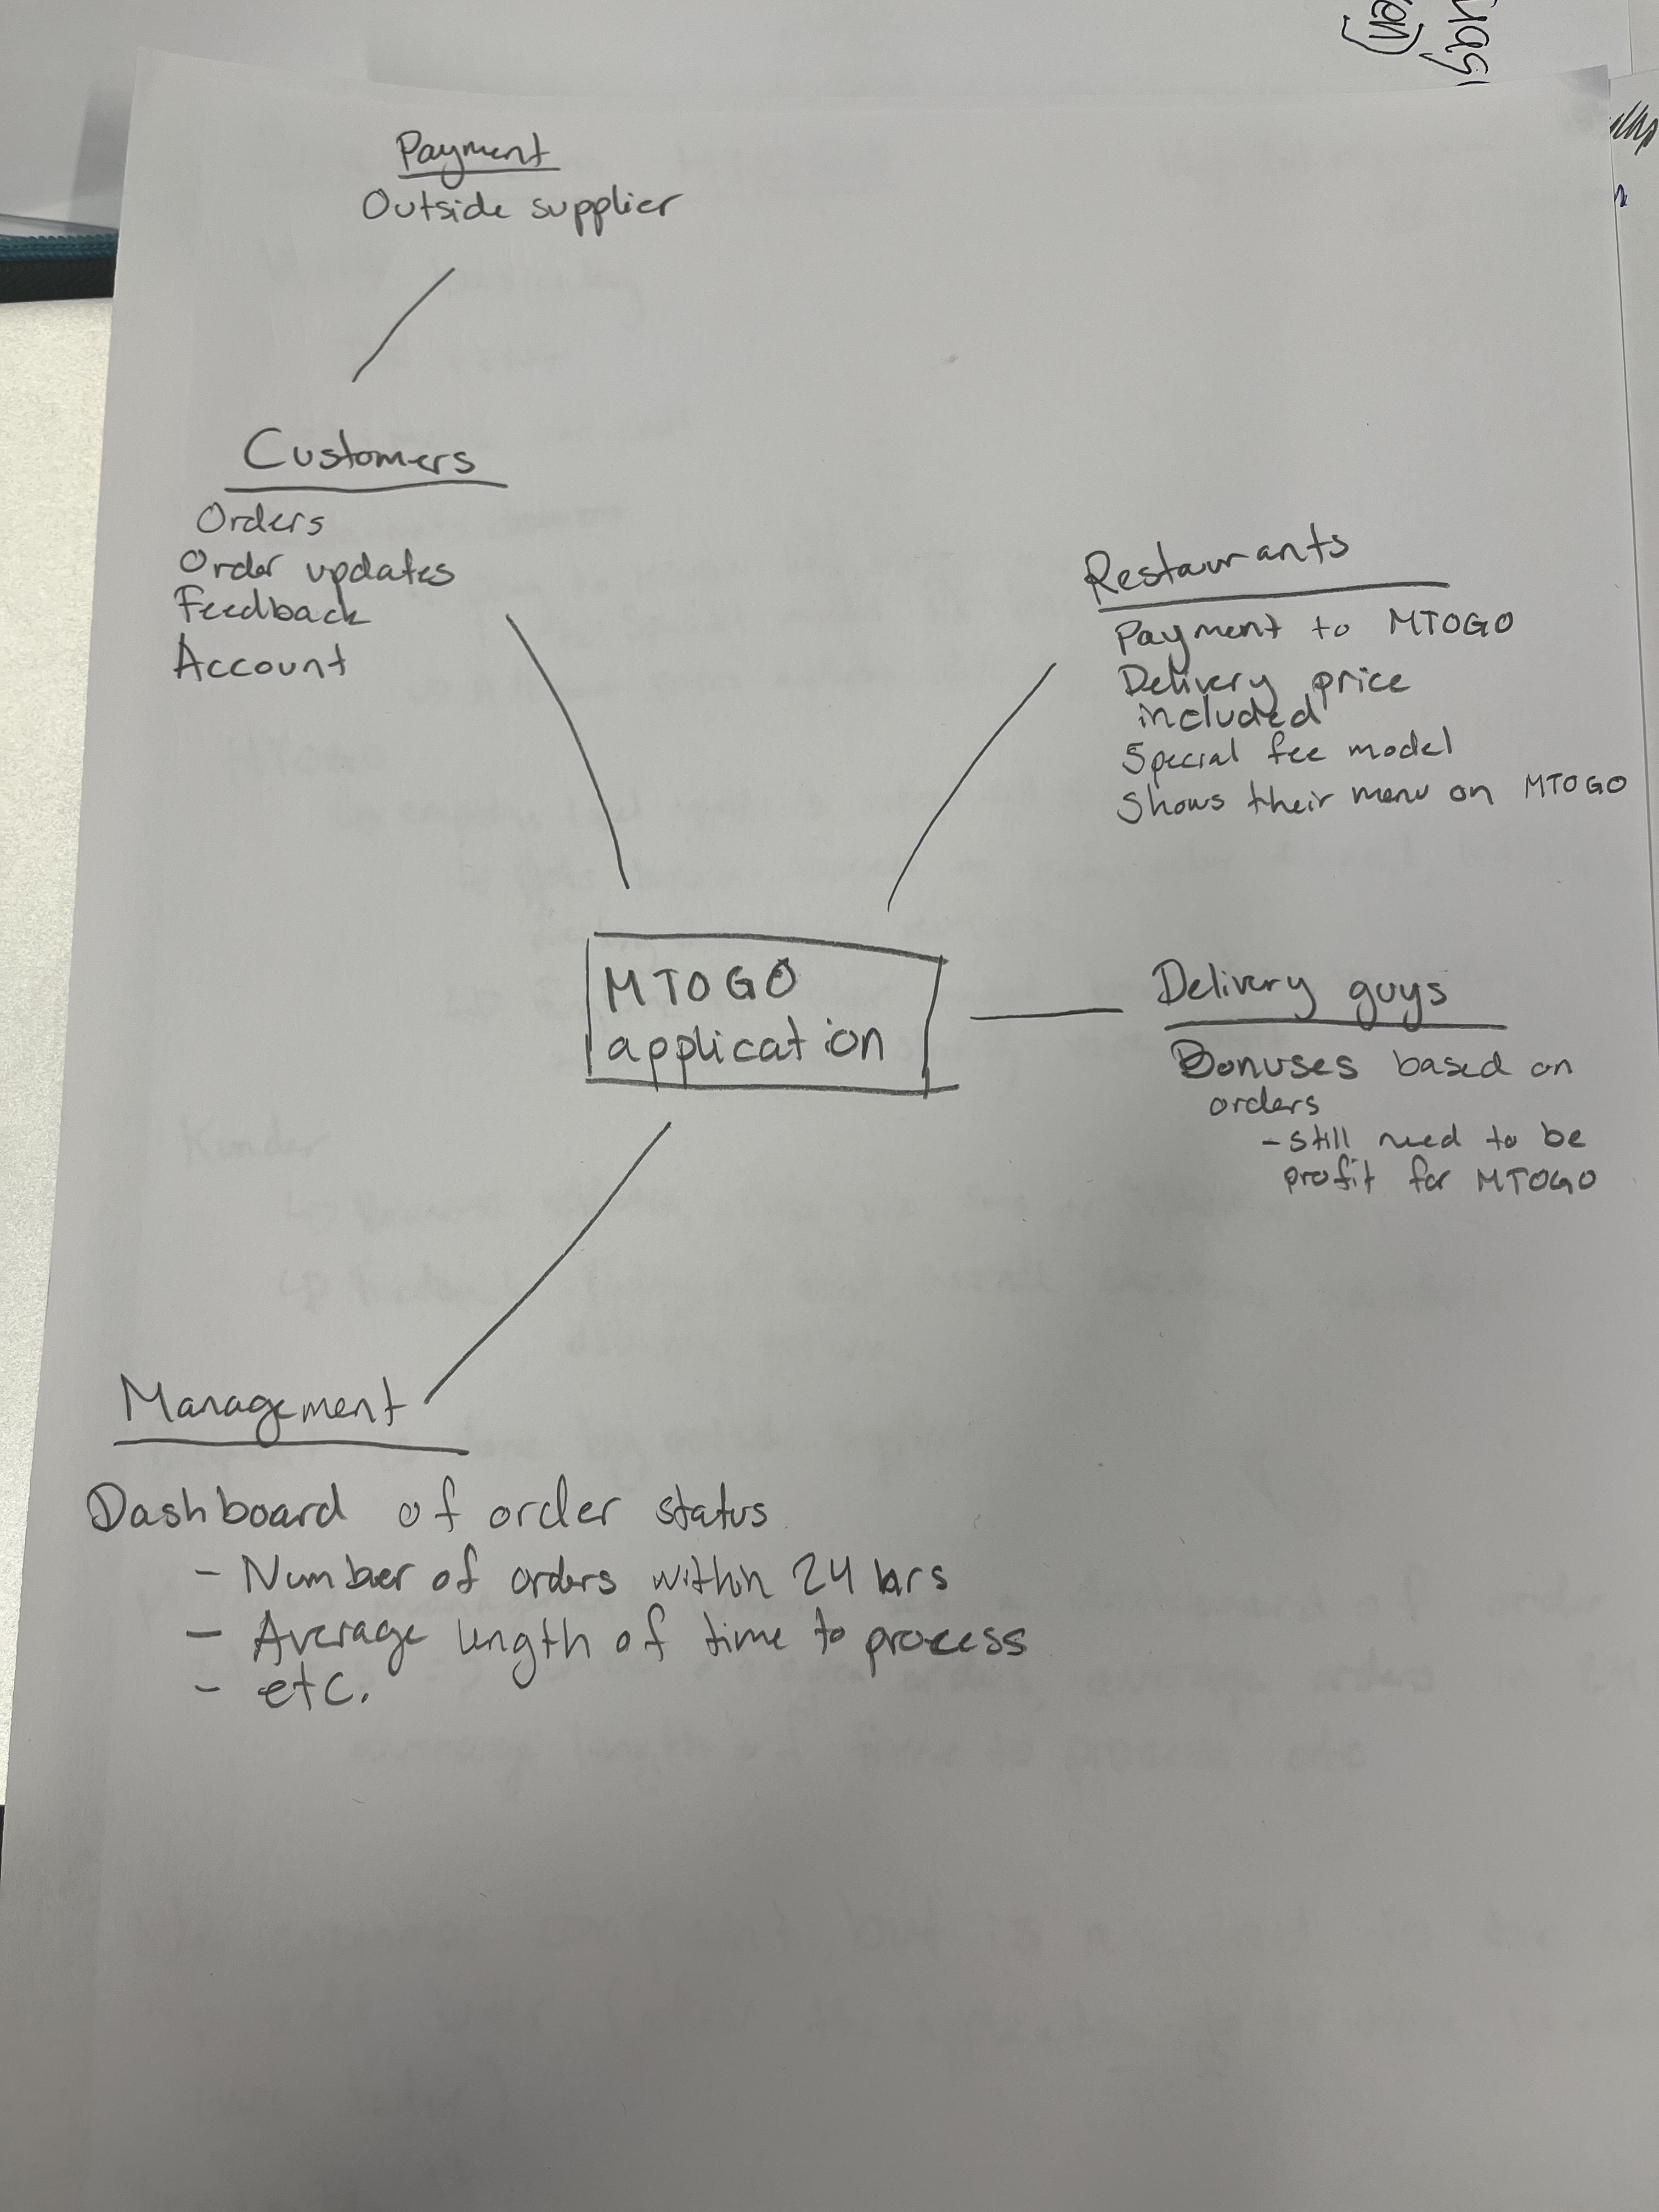 Payment
Outside supplier
Customers
Orders
Order updates
Feedback
Account
Restaurants
Payment to MTOGO
Delivery price
included
Special fee model
Shows their menu on MTOGO
MTOGO
application
Delivery guys
Bonuses based on
orders
- still need to be
profit for MTOGO
Management
Dashboard of order status
- Number of orders within 24 hrs
- Average length of time to process
- etc.